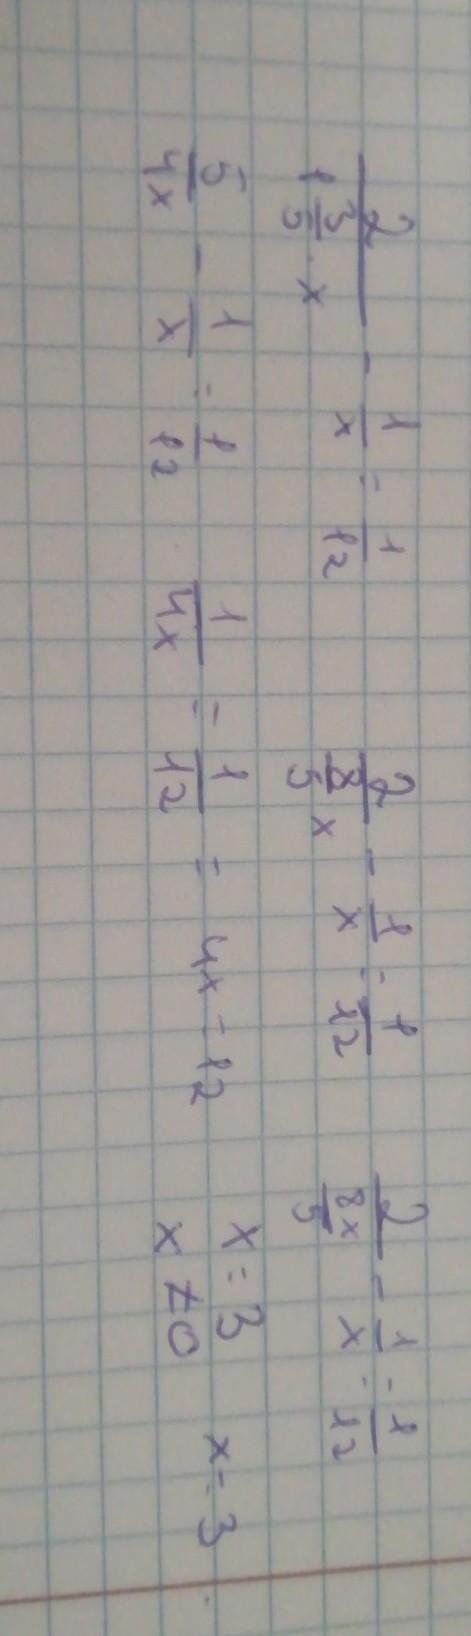 2/(1 3/5 · x) - 1/x = 1/12   2/(8/5 x) - 1/x = 1/12   2/(8x/5) - 1/x = 1/12
5/4x - 1/x = 1/12   1/4x = 1/12 = 4x = 12   x = 3   x = 3
x ≠ 0